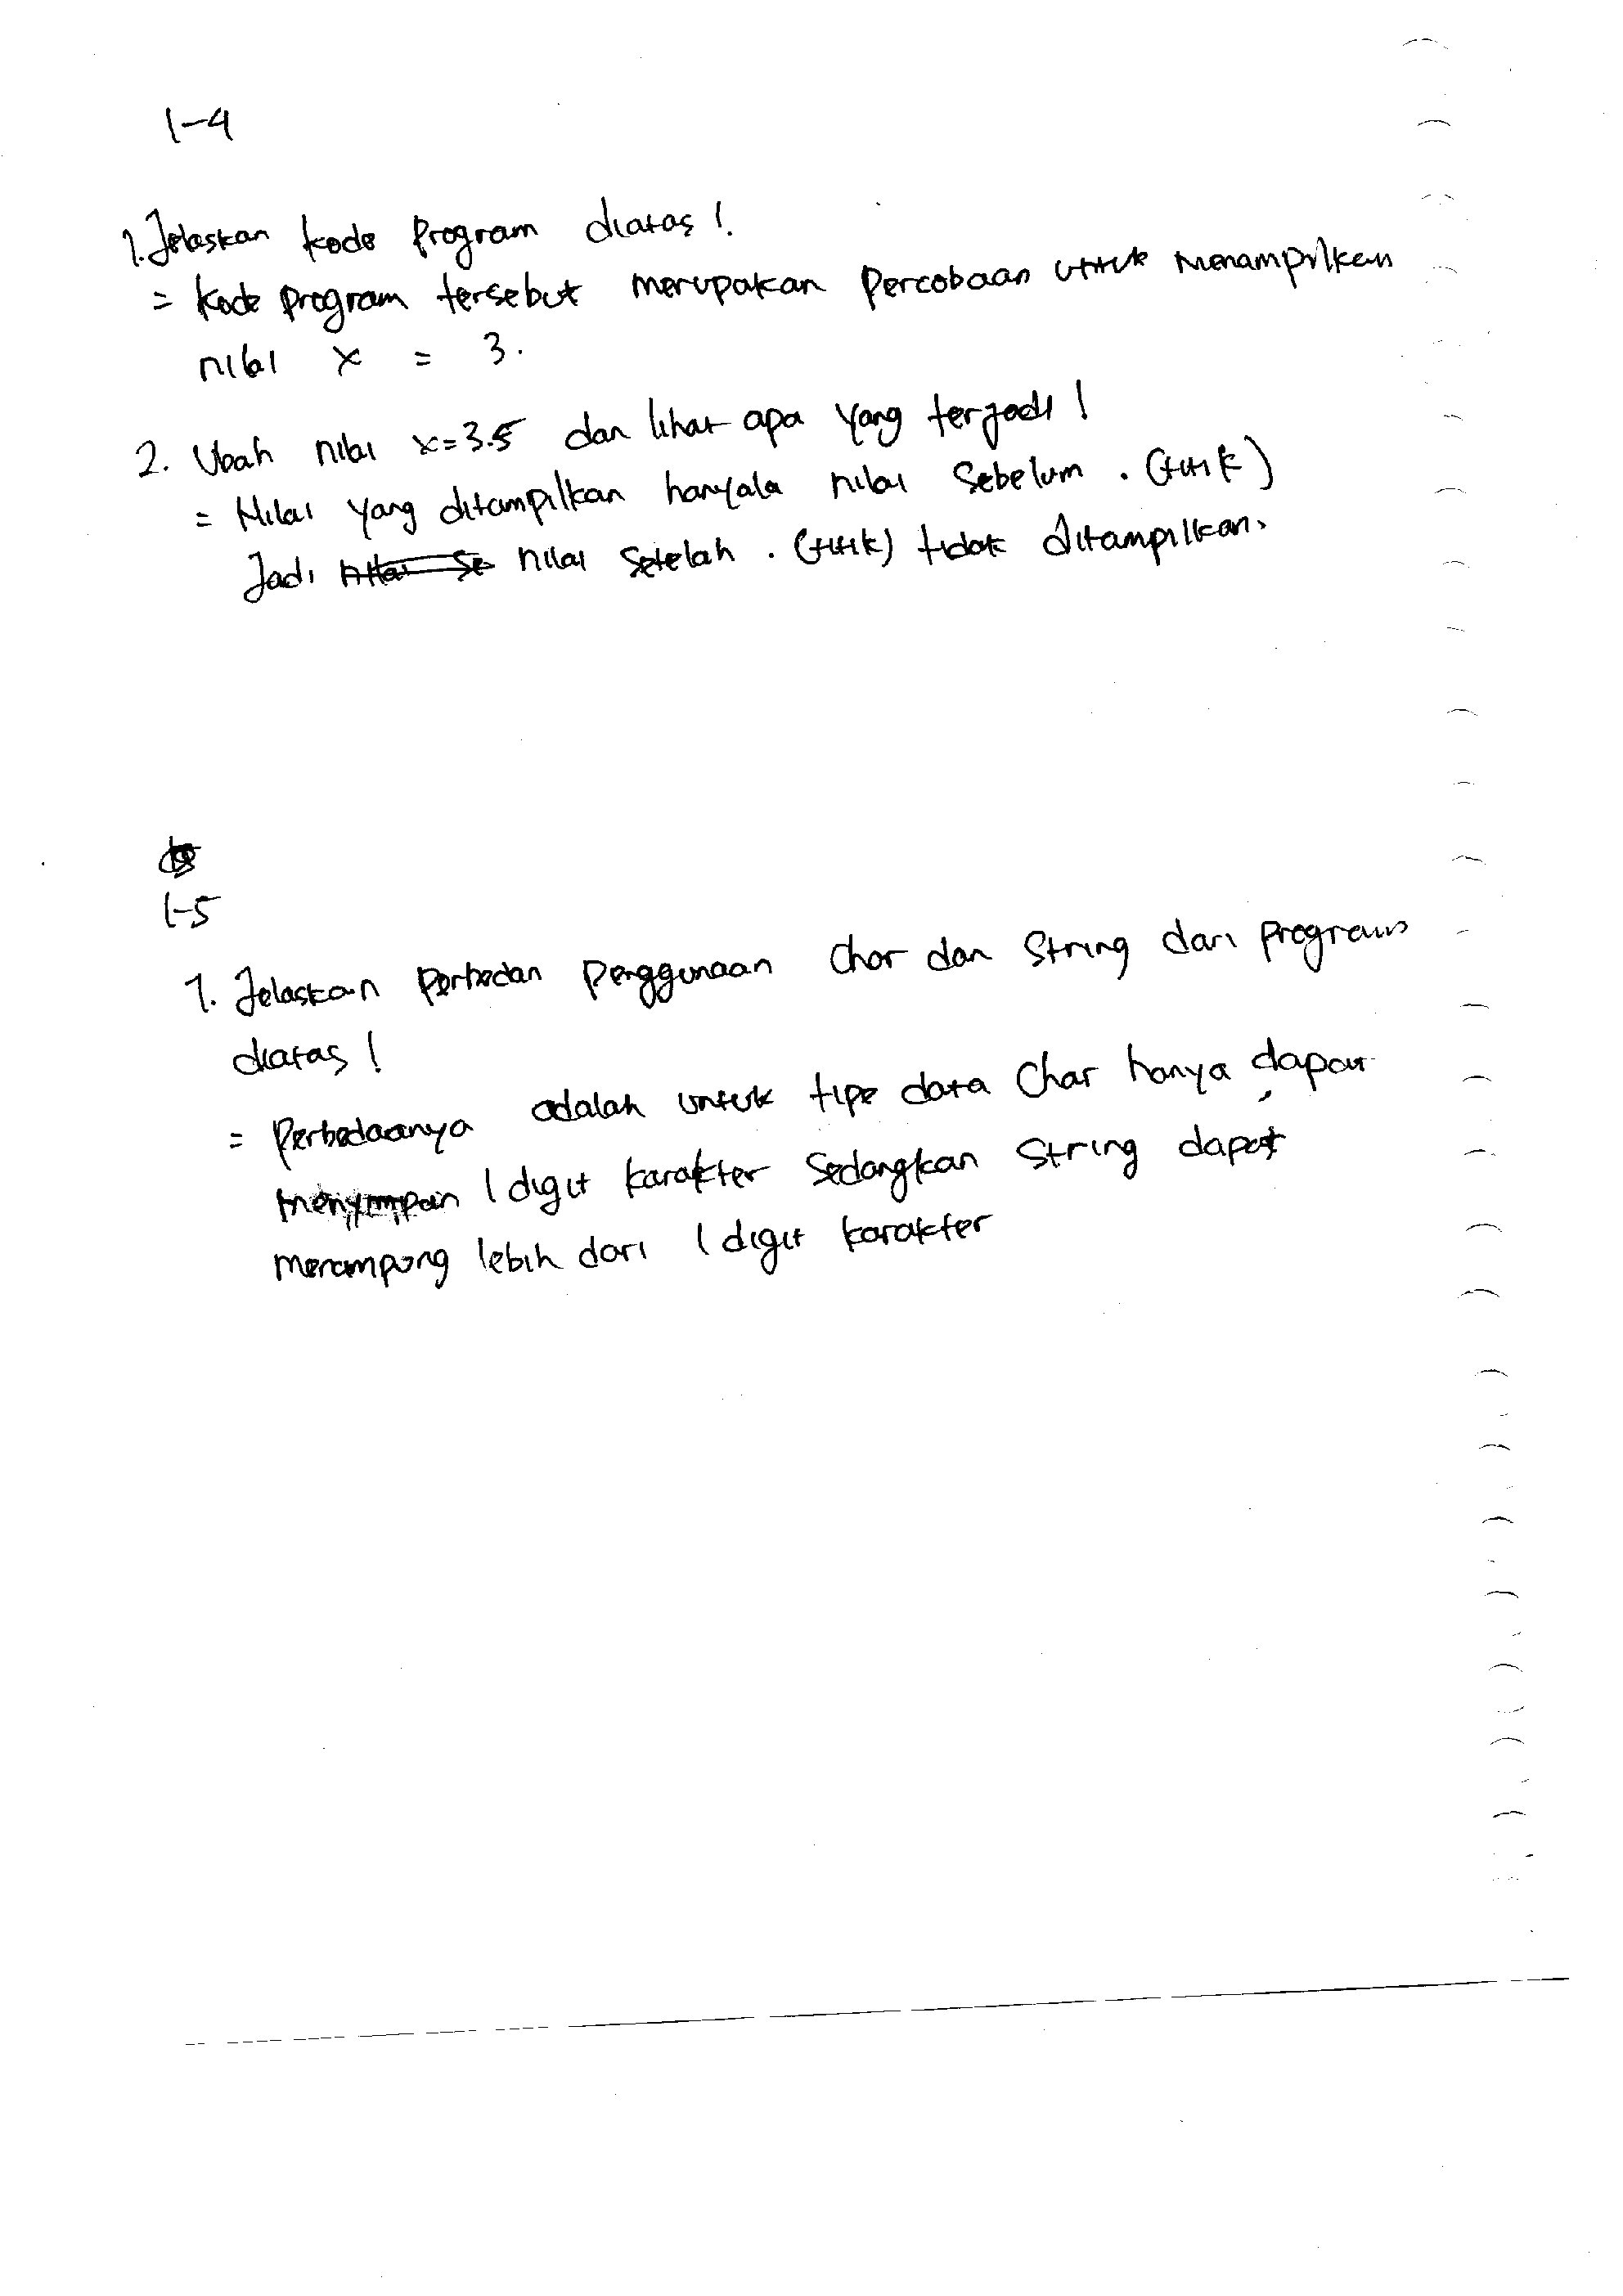 1-4
1. Jelaskan kode Program diatas !
= kode program tersebut merupakan Percobaan untuk menampilkan
nilai x = 3.
2. Ubah nilai x=3.5 dan lihat apa yang terjadi !
= Nilai yang ditampilkan hanyala nilai Sebelum . (titik)
Jadi nilai setelah . (titik) tidak ditampilkan.
1-5
1. Jelaskan Perbedan Penggunaan Char dan String dari Program
diatas !
= Perbedaanya adalah untuk tipe data Char hanya dapat
menyimpan 1 digit karakter Sedangkan String dapat
menampung lebih dari 1 digit karakter